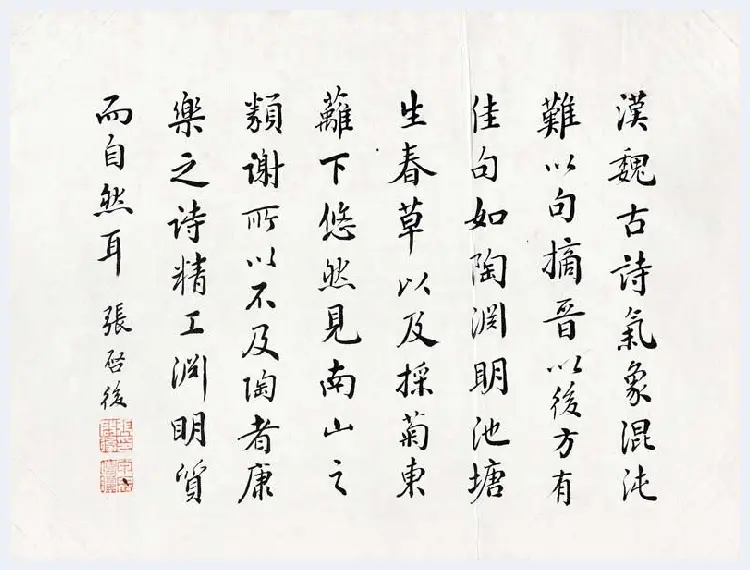 漢魏古詩氣象混沌
難以句摘晉以後方有
佳句如陶淵明池塘
生春草以及採菊東
蘺下悠然見南山之
類謝所以不及陶者康
樂之詩精工淵明質
而自然耳
張啓後